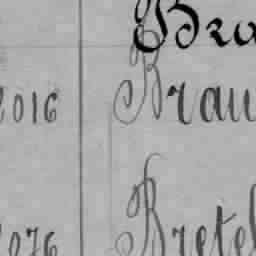 Bra
2016 Brau
2076 Bretel